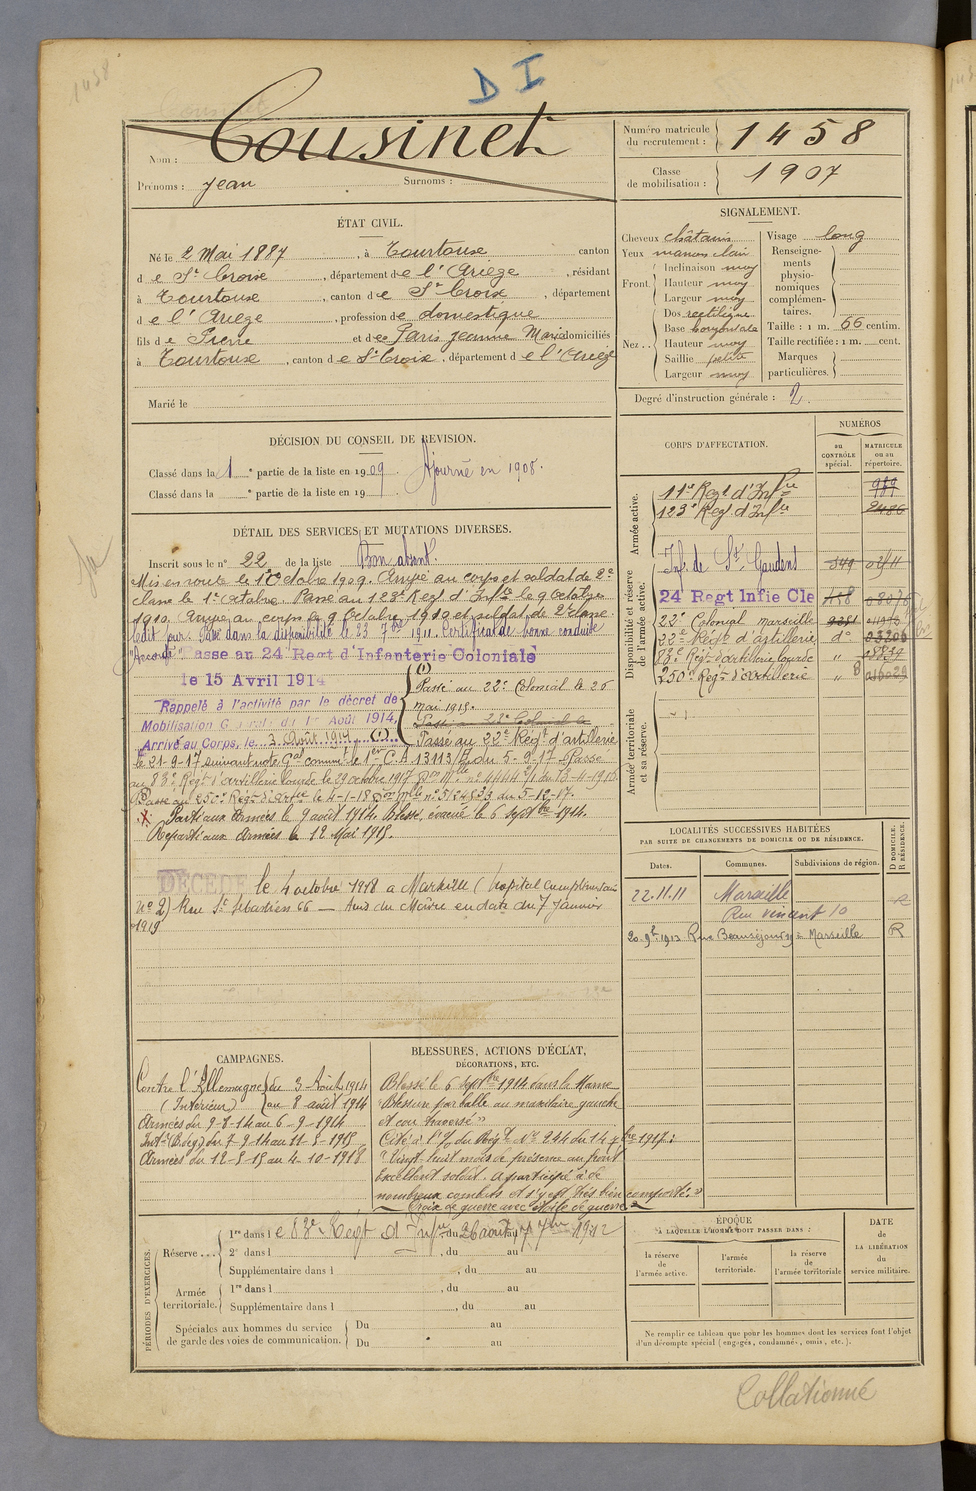 1458
D I
Nom : Cousinet
Prénoms : Jean Surnoms :
Numéro matricule du recrutement : 1458
Classe de mobilisation : 1907
ÉTAT CIVIL.
Né le 2 Mai 1887, à Tourtouse canton
d e St Croix, département de l'Ariège, résidant
à Tourtouse, canton de St Croix, département
d e l'Ariège, profession de domestique
fils de Pierre et de Paris Jeanne Marie domiciliés
à Tourtouse, canton de St Croix, département de l'Ariège
Marié le
SIGNALEMENT.
Cheveux châtains
Yeux marron clair
Front. Inclinaison moy
Hauteur moy
Largeur moy
Nez. Dos rectiligne
Base horizontale
Hauteur moy
Saillie petite
Largeur moy
Visage long
Renseignements physionomiques complémentaires.
Taille : 1 m. 66 centim.
Taille rectifiée : 1 m. cent.
Marques particulières.
Degré d'instruction générale : 2.
DÉCISION DU CONSEIL DE REVISION.
Classé dans la 1 e partie de la liste en 1909. Ajourné en 1908.
Classé dans la e partie de la liste en 19
DÉTAIL DES SERVICES ET MUTATIONS DIVERSES.
Inscrit sous le n° 22 de la liste Bon absent.
Mis en route le 1er Octobre 1909. Arrivé au corps et soldat de 2e
classe le 1er Octobre. Passé au 123e Régt d'Infie le 9 Octobre
1910. Arrivé au corps le 9 Octobre 1910 et soldat de 2e classe
dit jour. Passé dans la disponibilité le 23 7bre 1911. Certificat de bonne conduite
"Accordé" Passe au 24 Regt d'Infanterie Coloniale
le 15 Avril 1914
Rappelé à l'activité par le décret de
Mobilisation Générale du 1er Août 1914.
Arrivé au Corps, le 3 Août 1914 (1)
(1)
Passé au 22e Colonial le 26
mai 1915.
Passé au 22e Colonial le
Passé au 22e Régt d'artillerie
le 21-9-17 suivant note Gal commt le 1er C.A 13113/ du 5-9-17 Passé
au 83e Régt d'artillerie lourde le 29 octobre 1917
Passé au 250e Régt d'Artie le 4-1-18 du 5-12-17.
Parti aux Armées le 9 août 1914. Blessé, évacué le 6 Septbre 1914.
Reparti aux Armées le 12 Mai 1915.
DÉCÉDÉ le 4 octobre 1918 à Marseille (hopital complémentaire
n° 2) Rue St Sébastien 66 — Avis du Maire en date du 7 janvier
1919
CORPS D'AFFECTATION.
NUMÉROS
au CONTRÔLE spécial.
MATRICULE ou au répertoire.
Armée active.
11e Régt d'Infie 989
123e Régt d'Infie 2486
Disponibilité et réserve de l'armée active.
Inf. de St Gaudens 549
24 Regt Infie Cle
22e Colonial Marseille
22e Régt d'artillerie d° 03206
83e Régt d'artillerie lourde "
250e Régt d'artillerie "
Armée territoriale et sa réserve.
LOCALITÉS SUCCESSIVES HABITÉES
PAR SUITE DE CHANGEMENTS DE DOMICILE OU DE RÉSIDENCE.
Dates. Communes. Subdivisions de région. D DOMICILE. R RÉSIDENCE.
22.11.11 Marseille R
Rue Vincent 10
20 9bre 1913 Rue Beauséjour Marseille R
CAMPAGNES.
Contre l'Allemagne du 3 Août 1914
(Intérieur) au 8 août 1914
Armées du 9-8-14 au 6-9-1914
Intr (B. de g.) du 7-9-14 au 11-5-1915
Armées du 12-5-15 au 4-10-1918
BLESSURES, ACTIONS D'ÉCLAT,
DÉCORATIONS, ETC.
Blessé le 6 Septbre 1914 dans la Marne
"Blessure par balle au maxillaire gauche
et cou traversé"
Cité à l'O/ du Régt N° 244 du 14 9bre 1917 :
"Vingt huit mois de présence au front
Excellent soldat. A participé à de
nombreux combats et s'y est très bien comporté."
Croix de guerre avec étoile de guerre
PÉRIODES D'EXERCICES.
Réserve 1re dans l e 83e Regt d'Infie du 26 août au 7bre 1912
2e dans l , du au
Supplémentaire dans l , du au
Armée territoriale. 1re dans l , du au
Supplémentaire dans l , du au
Spéciales aux hommes du service de garde des voies de communication. Du au
Du au
ÉPOQUE
À LAQUELLE L'HOMME DOIT PASSER DANS :
la réserve de l'armée active.
l'armée territoriale.
la réserve de l'armée territoriale
DATE DE LA LIBÉRATION du service militaire.
Ne remplir ce tableau que pour les hommes dont les services font l'objet
d'un décompte spécial (engagés, condamnés, omis, etc.).
Collationné